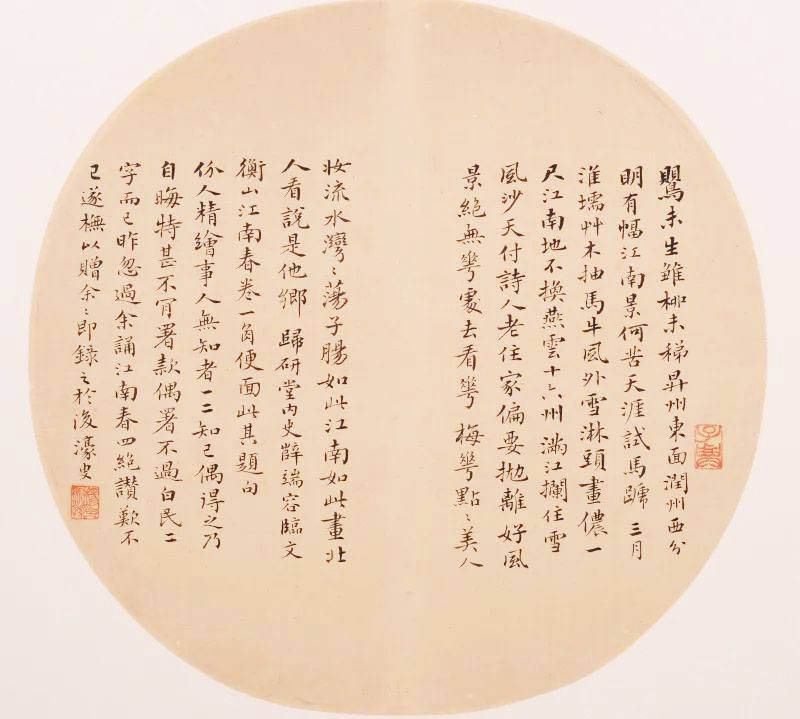 鷪未生雏柳未稊昇州東面潤州西分
明有幅江南景何苦天涯試馬蹏 三月
淮壖艸木抽馬牛風外雪淋頭畫儂一
尺江南地不換燕雲十六州 滿江攔住雪
風沙天付詩人老住家偏要拋離好風
景絕無華處去看華 梅華點〻美人
妝流水灣〻蕩子腸如此江南如此畫北
人看說是他鄉 歸研堂內史薛端容臨文
衡山江南春卷一角便面此其題句
份人精繪事人無知者一二知己偶得之乃
自晦特甚不肎署款偶署不過白民二
字而已昨忽過余誦江南春四絕讚歎不
已遂橅以贈余〻即錄之於後 濠叟